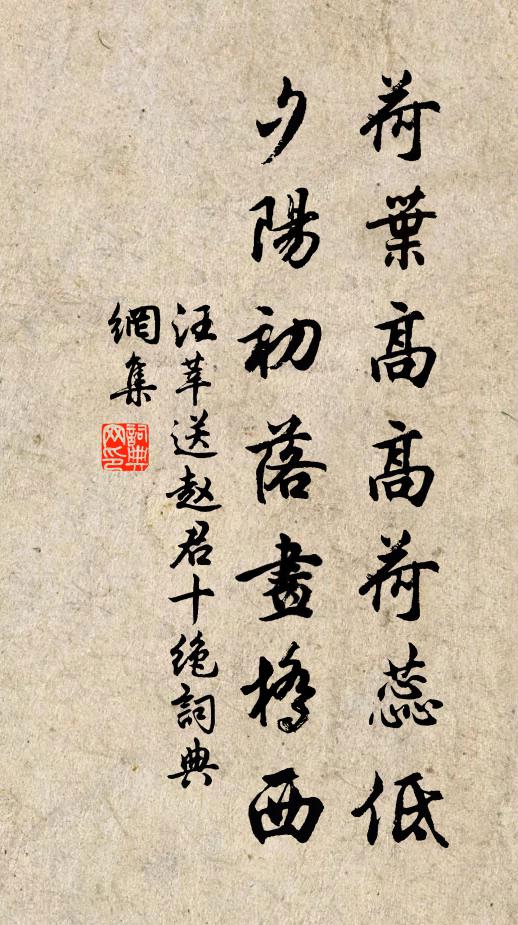 荷葉高高荷蕊低
夕陽初落畫橋西
汪莘送趙君十絶詞典
網集
詞典
网印